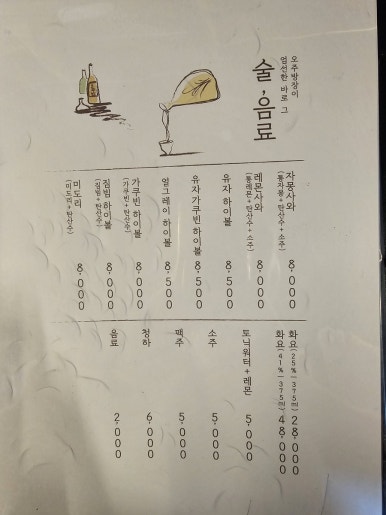 오주방장이
엄선한 바로 그
술,음료
자몽사와
(통자몽+탄산수+소주)
8,000
레몬사와
(통레몬+탄산수+소주)
8,000
유자 하이볼
8,500
유자가쿠빈 하이볼
8,500
얼그레이 하이볼
8,500
가쿠빈 하이볼
(가쿠빈+탄산수)
8,000
짐빔 하이볼
(짐빔+탄산수)
8,000
미도리
(미도리+탄산수)
8,000
화요(25%)375ml 28,000
화요(41%)375ml 48,000
토닉워터+레몬
5,000
소주
5,000
맥주
5,000
청하
6,000
음료
2,000